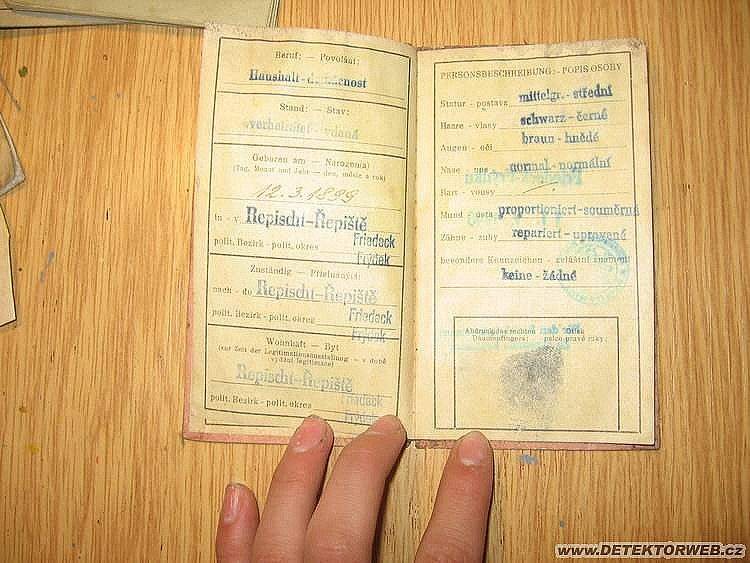 Beruf: — Povolání:
Haushalt-domácnost
Stand: — Stav:
verheiratet - vdaná
Geboren am — Narozen(a)
(Tag, Monat und Jahr — den, měsíc a rok)
12.3.1899
in - v Repischt-Řepiště
polit. Bezirk - polit. okres Friedeck
Frýdek
Zuständig — Příslušný:
nach - do Repischt-Řepiště
polit. Bezirk - polit. okres Friedeck
Frýdek
Wohnhaft — Byt
(zur Zeit der Legitimationsausstellung — v době
vydání legitimace)
Repischt-Řepiště
polit. Bezirk - polit. okres Friedeck
Frýdek
PERSONSBESCHREIBUNG: - POPIS OSOBY
Statur - postava mittelgr.- střední
Haare - vlasy schwarz - černé
Augen - oči braun - hnědé
Nase - nos normal - normální
Bart - vousy
Mund - ústa proportioniert - souměrná
Zähne - zuby repariert - upravené
besondere Kennzeichen - zvláštní znamení
keine - žádné
Abdruck des rechten - otisk
Daumenfingers: palce pravé ruky:
www.DETEKTORWEB.cz